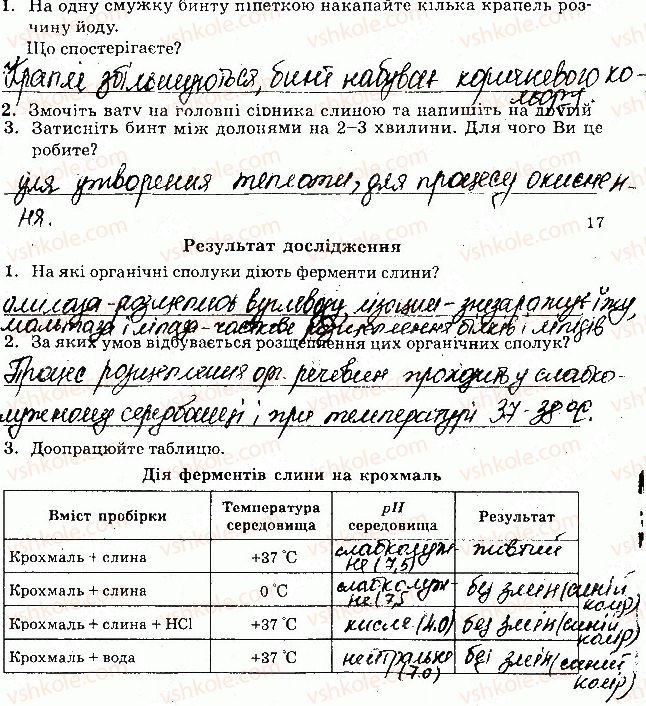 1. На одну смужку бинту піпеткою накапайте кілька крапель роз-
чину йоду.
Що спостерігаєте?
Краплі збільшуються, бинт набуває коричневого ко-
льору.
2. Змочіть вату на головні сірника слиною та напишіть на другій
3. Затисніть бинт між долонями на 2–3 хвилини. Для чого Ви це
робите?
Для утворення теплоти, для процесу окиснен-
ня.
17
Результат дослідження
1. На які органічні сполуки діють ферменти слини?
амілаза - розщеплює вуглеводи, лізоцим - знезаражує їжу,
мальтаза і ліпаза - часткове розщеплення білків і ліпідів
2. За яких умов відбувається розщеплення цих органічних сполук?
Процес розщеплення орг. речовин проходить у слабко-
лужному середовищі і при температурі 37-38°C.
3. Доопрацюйте таблицю.
Дія ферментів слини на крохмаль
Вміст пробірки Температура середовища pH середовища Результат
Крохмаль + слина +37 °C слаболужне (7,5) жовтий
Крохмаль + слина 0 °C слаболужне (7,5 без змін (синій колір)
Крохмаль + слина + HCl +37 °C кисле (4.0) без змін (синій колір)
Крохмаль + вода +37 °C нейтральне (7.0) без змін (синій колір)
vshkole.com